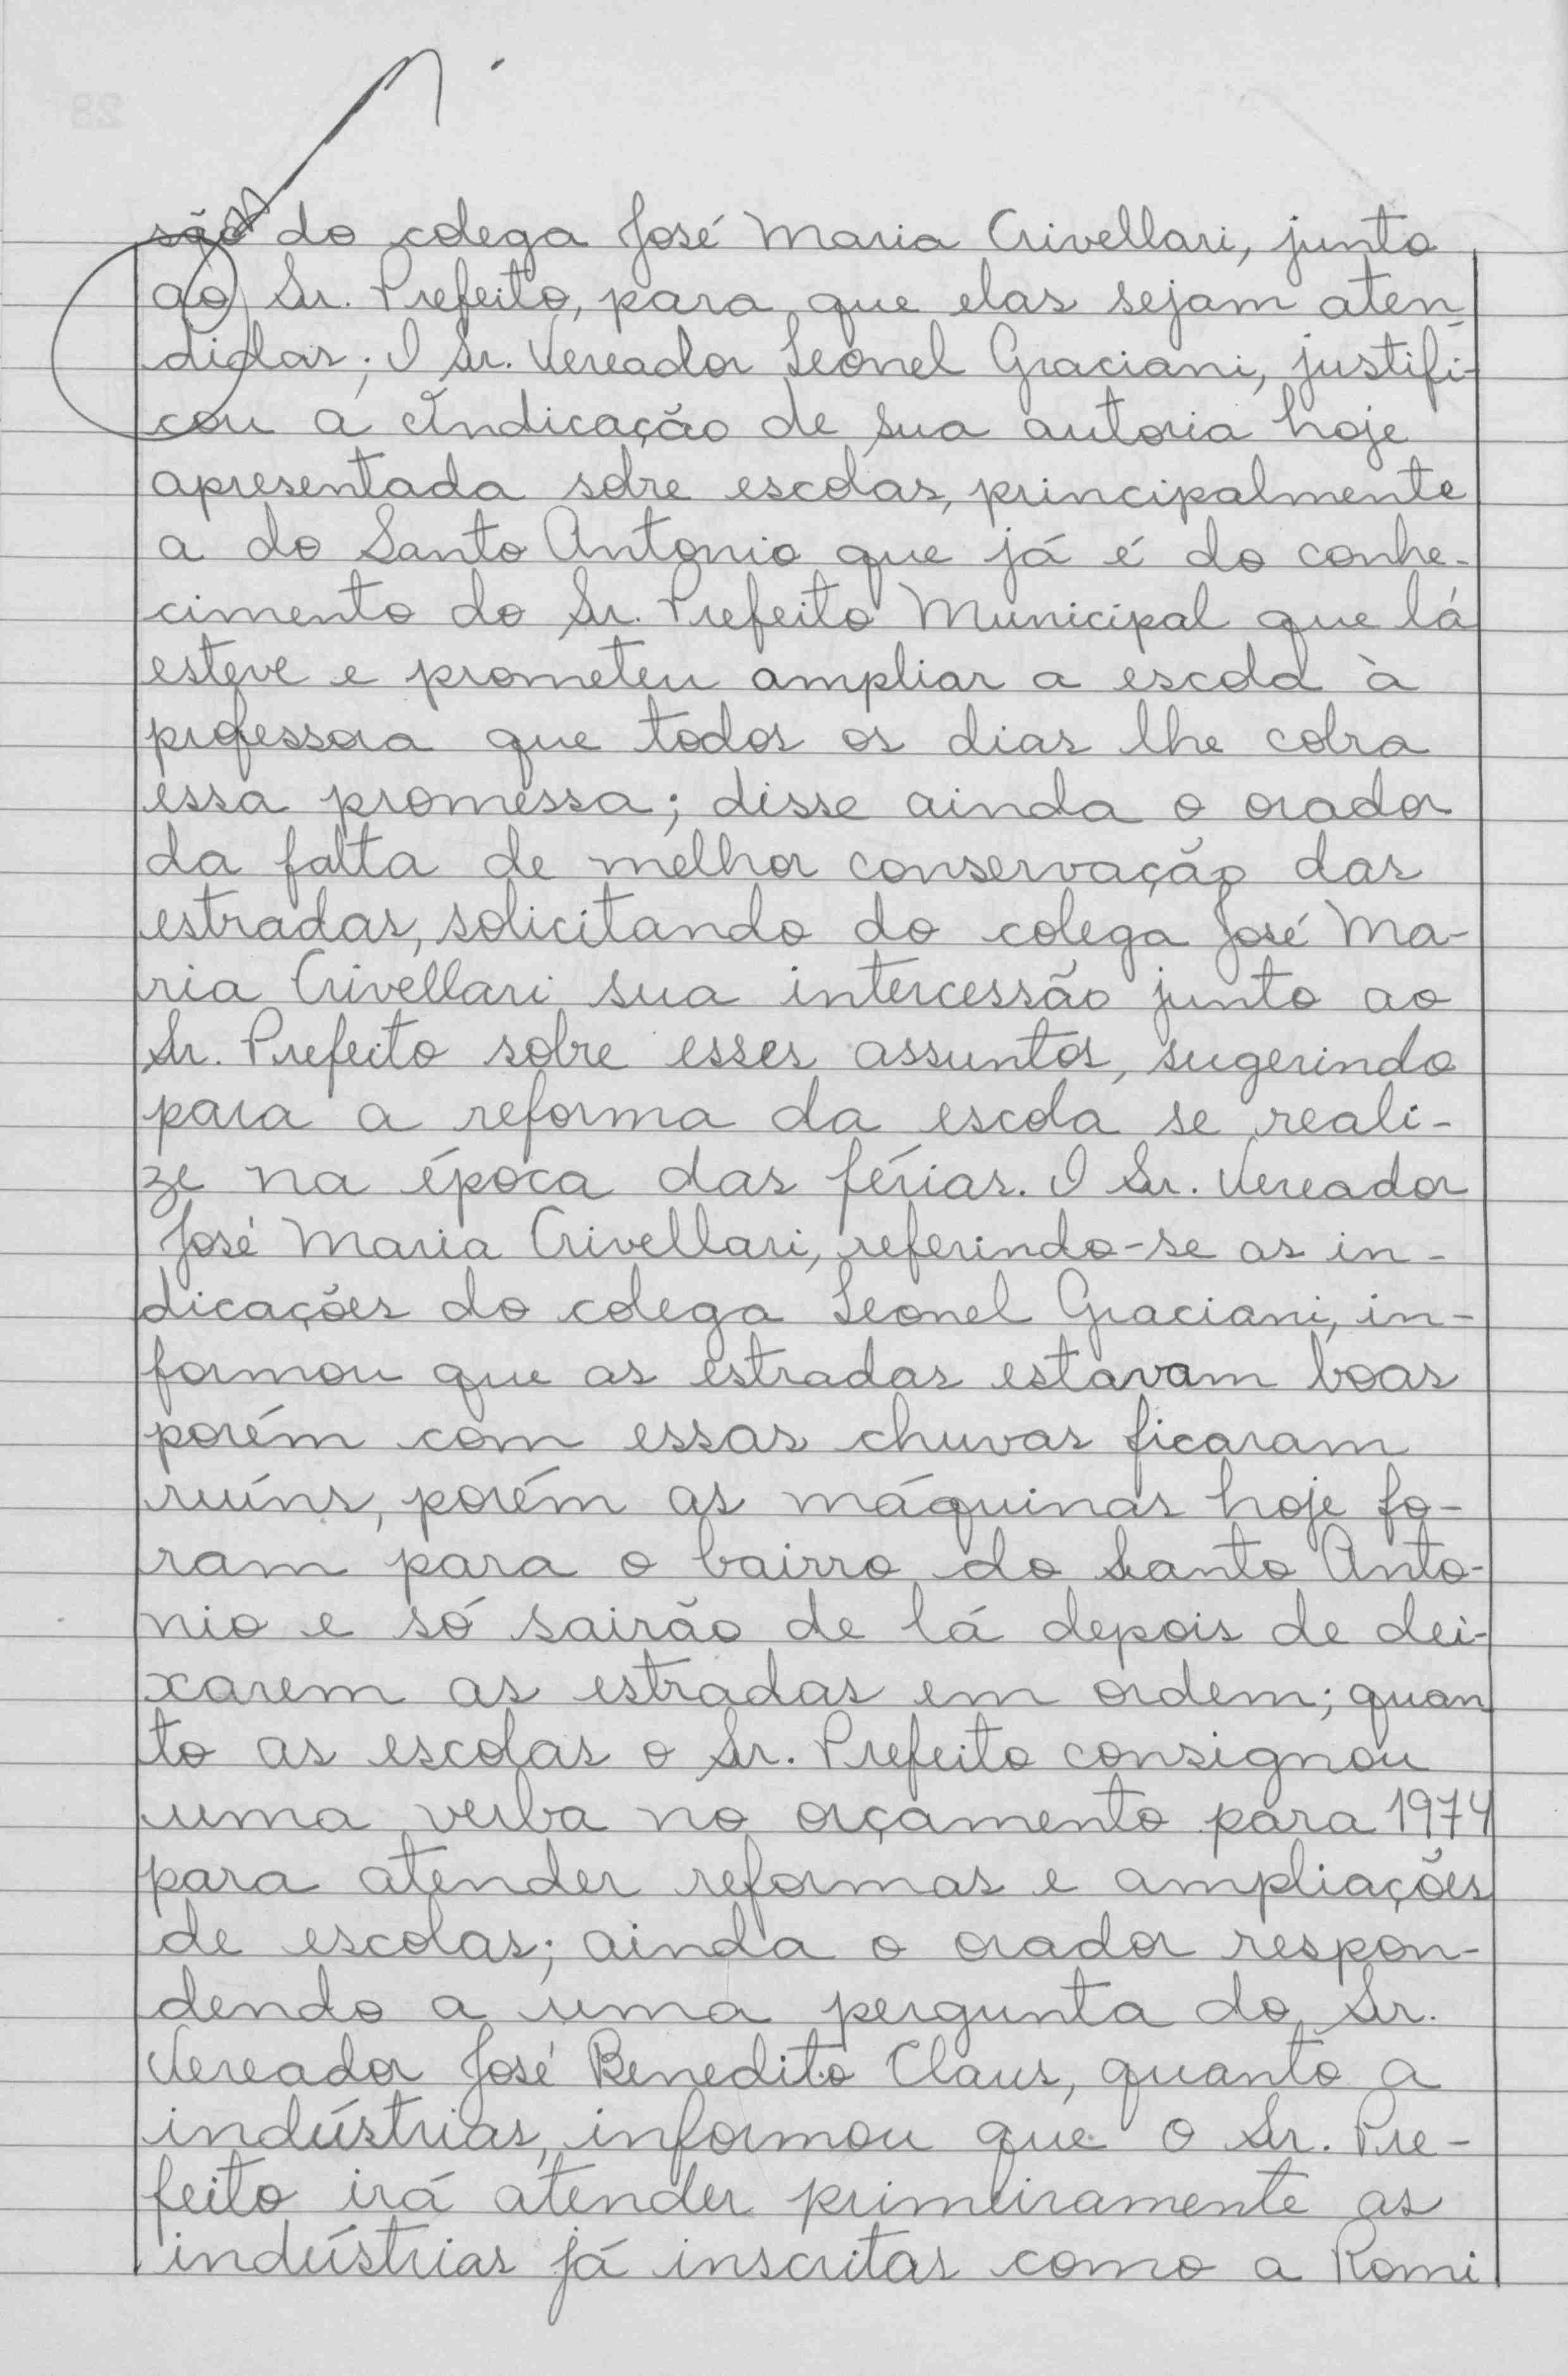 são do colega José Maria Crivellari, junto
ao Sr. Prefeito, para que elas sejam aten-
didas; O Sr. Vereador Leonel Graciani, justifi-
cou a Indicação de sua autoria hoje
apresentada sobre escolas, principalmente
a do Santo Antonio que já é do conhe-
cimento do Sr. Prefeito Municipal que lá
esteve e prometeu ampliar a escola à
professora que todos os dias lhe cobra
essa promessa; disse ainda o orador
da falta de melhor conservação das
estradas, solicitando do colega José Ma-
ria Crivellari sua intercessão junto ao
Sr. Prefeito sobre esses assuntos, sugerindo
para a reforma da escola se reali-
ze na época das férias. O Sr. Vereador
José Maria Crivellari, referindo-se as in-
dicações do colega Leonel Graciani, in-
formou que as estradas estavam boas
porém com essas chuvas ficaram
ruíns, porém as máquinas hoje fo-
ram para o bairro do Santo Anto-
nio e só sairão de lá depois de dei-
xarem as estradas em ordem; quan
to as escolas o Sr. Prefeito consignou
uma verba no orçamento para 1974
para atender reformas e ampliações
de escolas; ainda o orador respon-
dendo a uma pergunta do Sr.
Vereador José Benedito Claus, quanto a
indústrias, informou que o Sr. Pre-
feito irá atender primeiramente as
indústrias já inscritas como a Romi